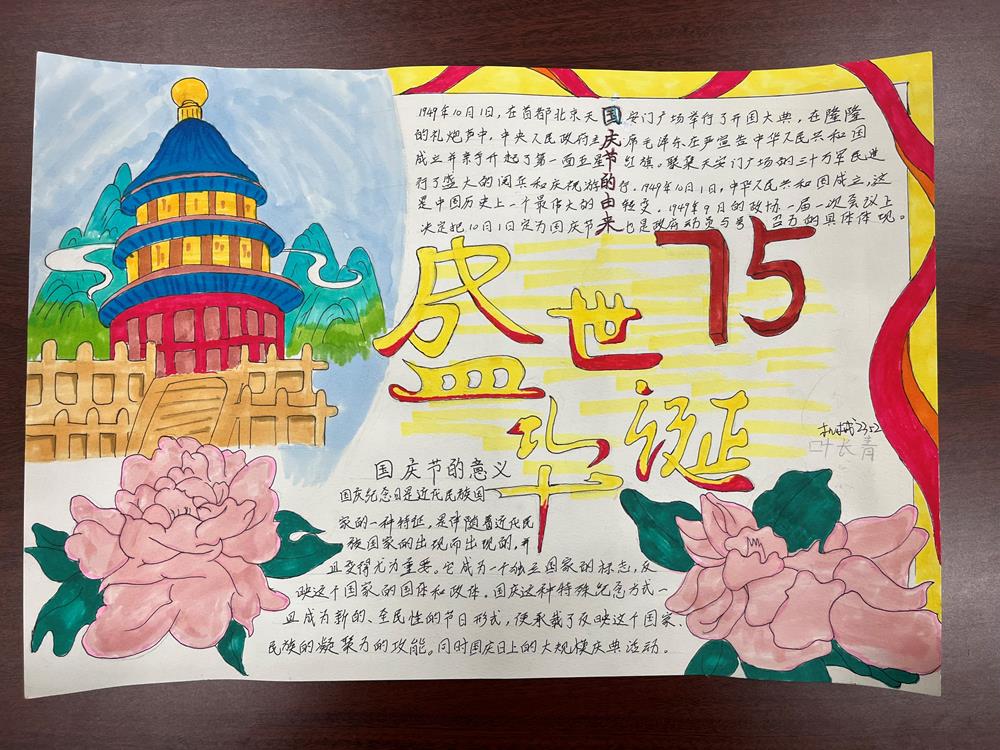 国庆节的由来
1949年10月1日,在首都北京天安门广场举行了开国大典,在隆隆
的礼炮声中,中央人民政府主席毛泽东庄严宣告中华人民共和国
成立并亲手升起了第一面五星红旗。聚集天安门广场的三十万军民进
行了盛大的阅兵和庆祝游行。1949年10月1日,中华人民共和国成立,这
是中国历史上一个最伟大的转变。1949年9月的政协一届一次会议上
决定把10月1日定为国庆节也是政府动员与号召力的具体体现。
盛世75
华诞
机械2352
叶长青
国庆节的意义
国庆纪念日是近代民族国
家的一种特征,是伴随着近代民
族国家的出现而出现的,并
且变得尤为重要。它成为一个独立国家的标志,反
映这个国家的国体和政体。国庆这种特殊纪念方式一
旦成为新的、全民性的节日形式,便承载了反映这个国家、
民族的凝聚力的攻能。同时国庆日上的大规模庆典活动。